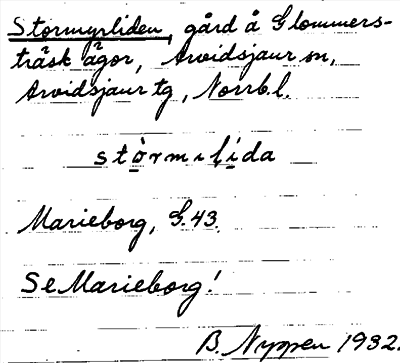 Stormyrliden, gård å Glommers-
träsk ägor, Arvidsjaur sn,
Arvidsjaur tg, Norrb.l.
stòrmılı̣da
Marieborg, G.43.
Se Marieborg!
B. Nyppen 1932.